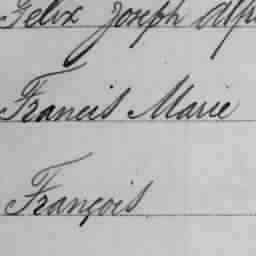 Felix Joseph
Francis Marie
François